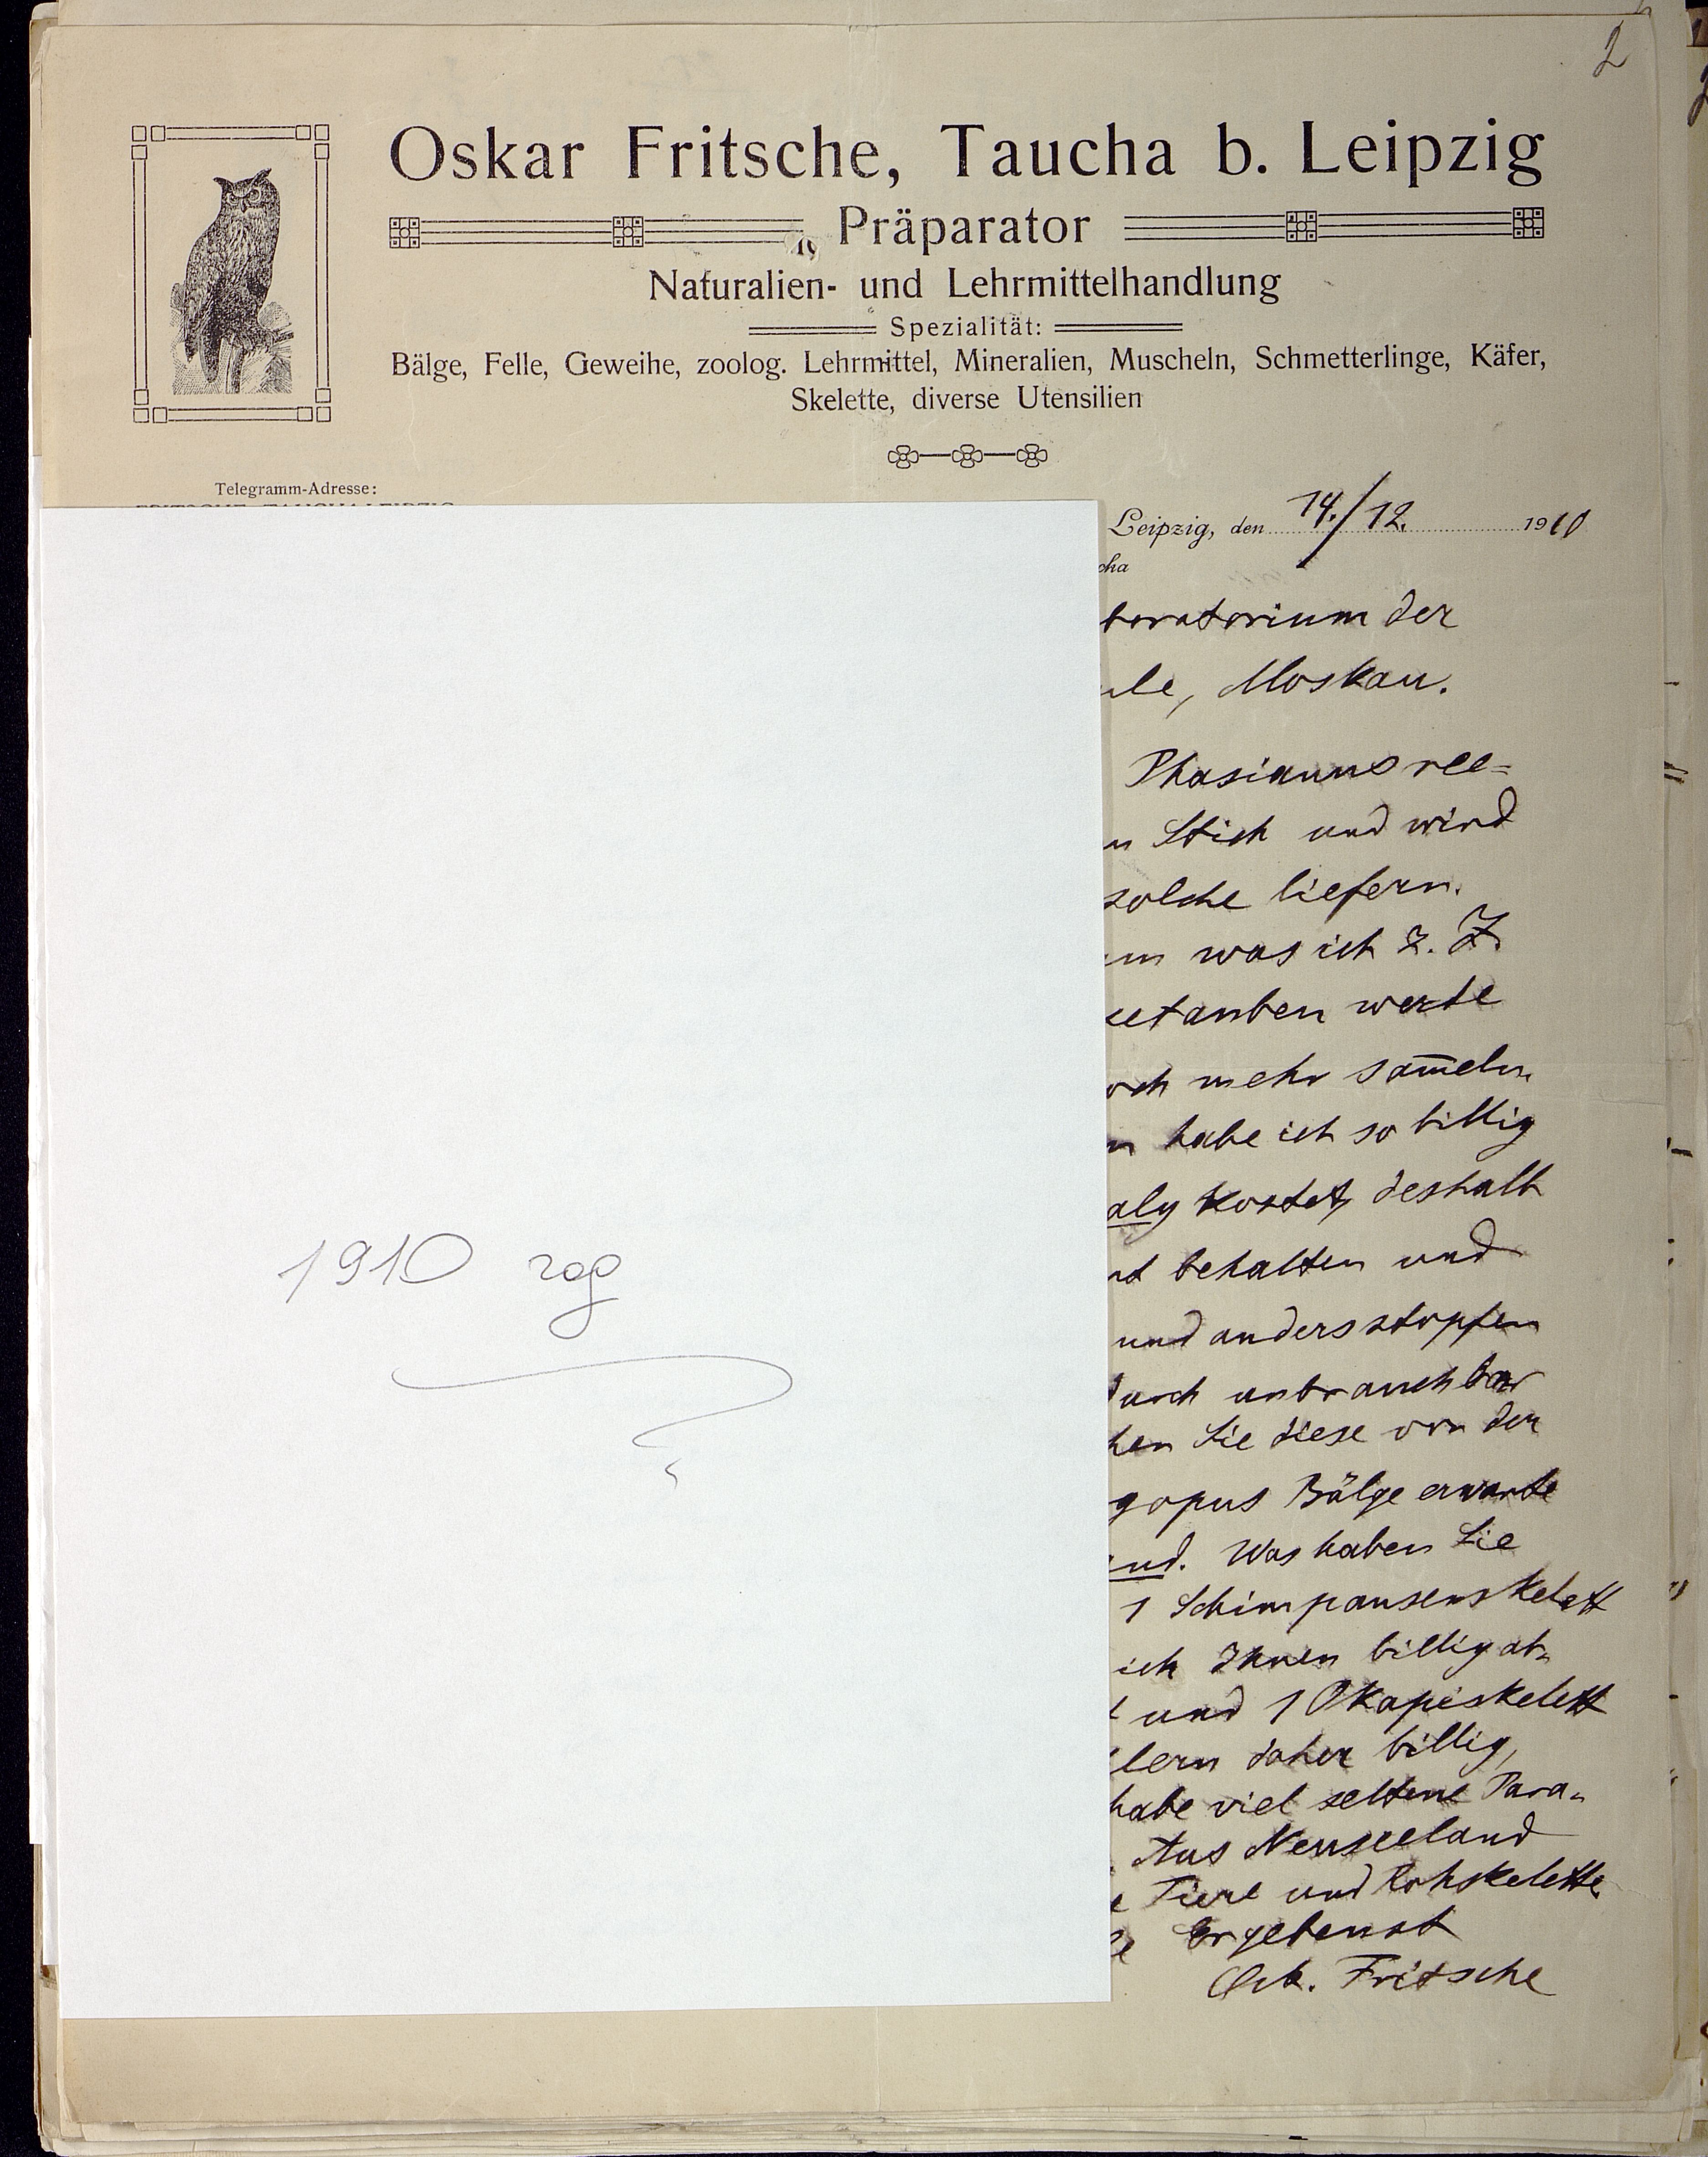 2
Oskar Fritsche, Taucha b. Leipzig
Präparator
Naturalien- und Lehrmittelhandlung
Spezialität:
Bälge, Felle, Geweihe, zoolog. Lehrmittel, Mineralien, Muscheln, Schmetterlinge, Käfer,
Skelette, diverse Utensilien
Telegramm-Adresse:
Leipzig, den 14./12. 1910
cha
boratorium der
ule, Moskau.
Phasianus ree=
n Stich und wird
solche liefern.
um was ich z. Z.
setauben werde
och mehr sam̅eln.
n habe ich so billig
alg kostet, deshalb
ht behalten und
und anders stopfen
durch unbrauchbar
hen Sie diese von der
gopus Bälge erwarte
end. Was haben Sie
1 Schimpansenskelett
ich Ihnen billig ab-
t und 1 Okapiskelett
lern daher billig,
habe viel seltene Para-
Aus Neuseeland
e Tiere und Rohskelette
Ergebenst
Osk. Fritsche
1910 год